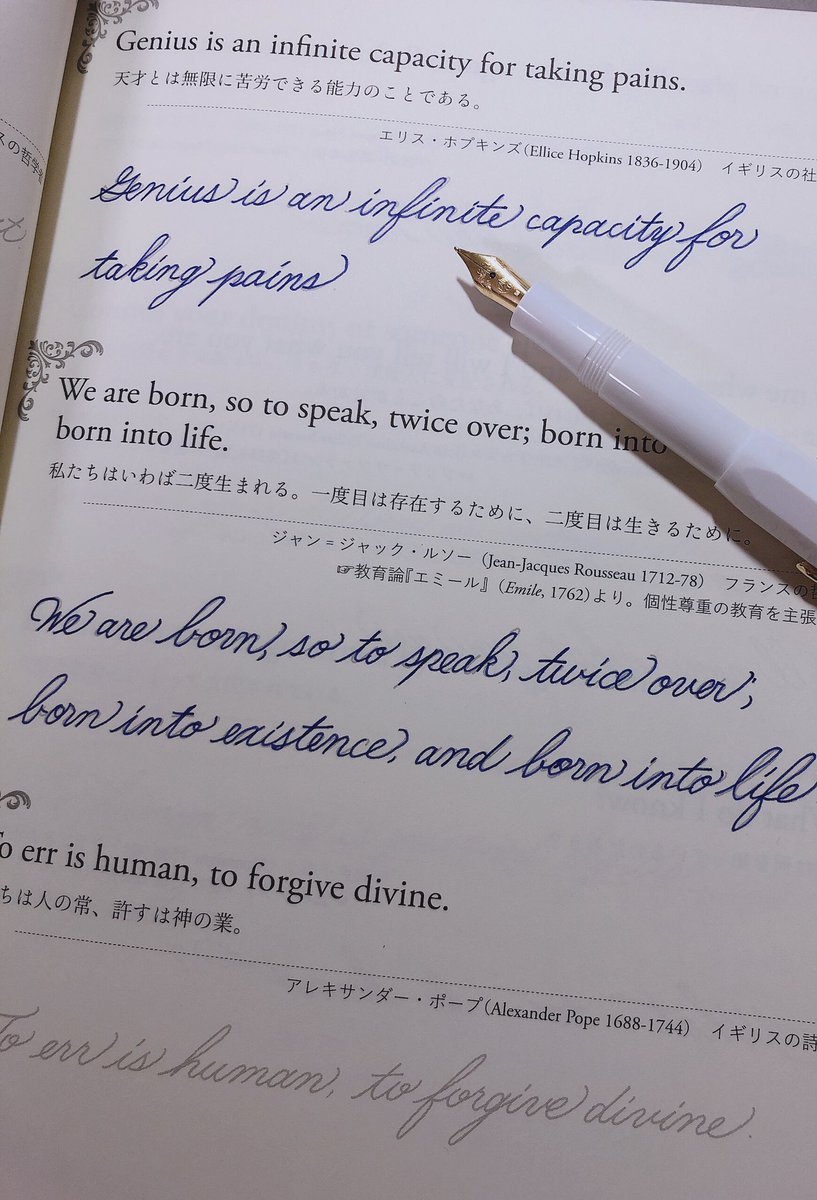 Genius is an infinite capacity for taking pains.
天才とは無限に苦労できる能力のことである。
エリス・ホプキンズ(Ellice Hopkins 1836-1904) イギリスの社
Genius is an infinite capacity for
taking pains
We are born, so to speak, twice over; born into
born into life.
私たちはいわば二度生まれる。一度目は存在するために、二度目は生きるために。
ジャン=ジャック・ルソー (Jean-Jacques Rousseau 1712-78) フランスの哲
☞教育論『エミール』(Emile, 1762)より。個性尊重の教育を主張
We are born, so to speak, twice over;
born into existence, and born into life
To err is human, to forgive divine.
ちは人の常、許すは神の業。
アレキサンダー・ポープ(Alexander Pope 1688-1744) イギリスの詩
To err is human, to forgive divine.
スの哲学者